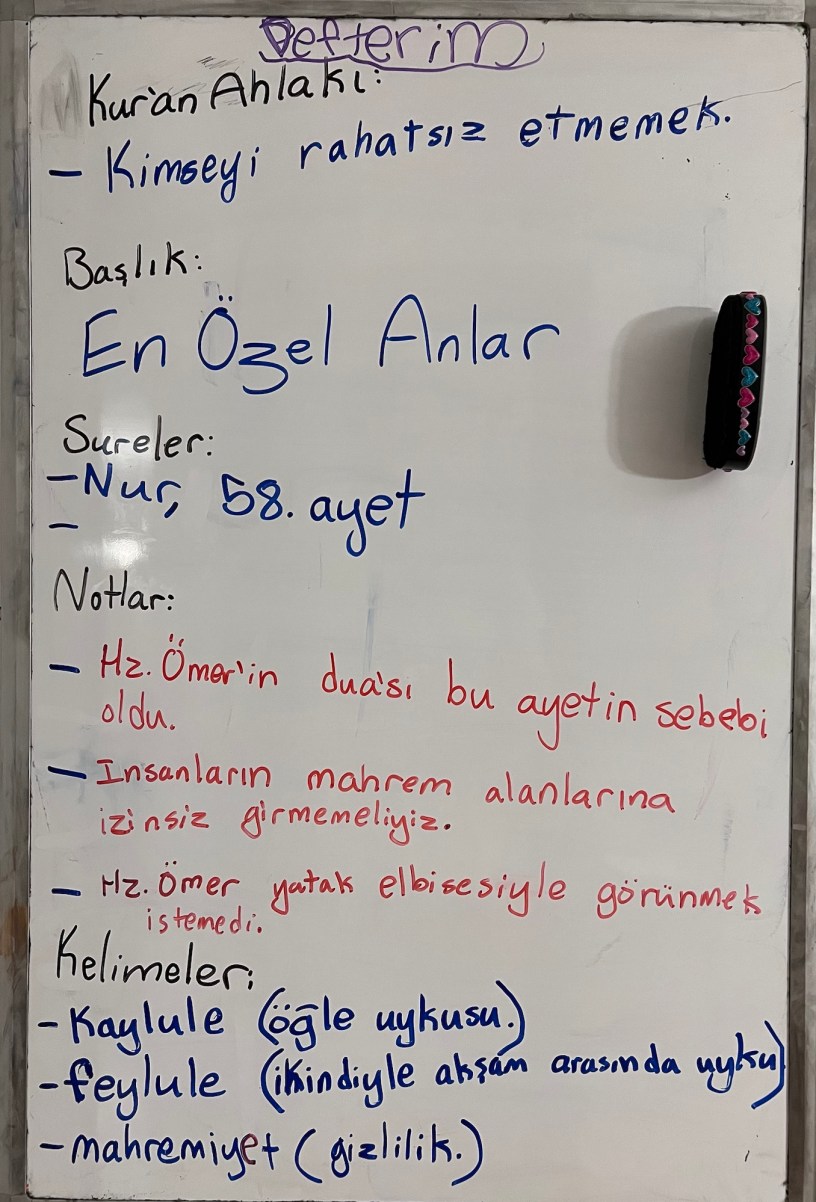 Defterim
Kur'an Ahlakı:
- Kimseyi rahatsız etmemek.
Başlık:
En Özel Anlar
Sureler:
- Nur, 58. ayet
-
Notlar:
- Hz. Ömer'in dua'sı bu ayetin sebebi
oldu.
- Insanların mahrem alanlarına
izinsiz girmemeliyiz.
- Hz. Ömer yatak elbisesiyle görünmek
istemedi.
Kelimeler:
- Kaylule (öğle uykusu.)
- feylule (ikindiyle akşam arasında uyku)
- mahremiyet (gizlilik.)